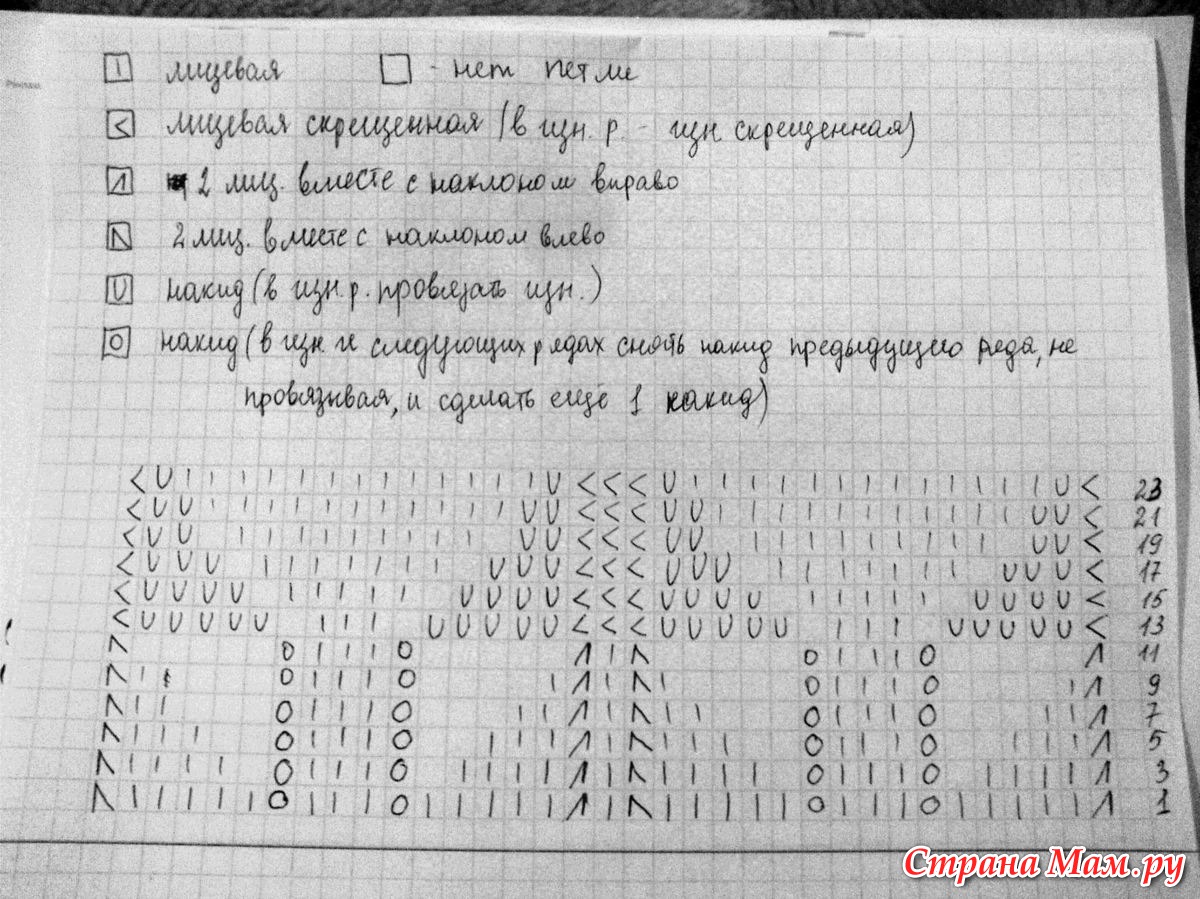 | лицевая □ - нет петли
< лицевая скрещенная (в изн. р. - изн скрещенная)
Λ 2 лиц. вместе с наклоном вправо
Λ 2 лиц. вместе с наклоном влево
U накид (в изн. р. провязать изн.)
O накид (в изн и следующих рядах снять накид предыдущего ряда, не
провязывая, и сделать ещё 1 накид)
< U | | | | | | | | | | | | | U < < < U | | | | | | | | | | | | | U < 23
< U U | | | | | | | | | | | U U < < < U U | | | | | | | | | | | U U < 21
< U U | | | | | | | | | U U < < < U U | | | | | | | | | U U < 19
< U U U | | | | | | | U U U < < < U U U | | | | | | | U U U < 17
< U U U U | | | | | U U U U < < < U U U U | | | | | U U U U < 15
< U U U U U | | | U U U U U < < < U U U U U | | | U U U U U < 13
Λ O | | | O Λ | Λ O | | | O Λ 11
Λ | O | | | O | Λ | Λ | O | | | O | Λ 9
Λ | | O | | | O | | Λ | Λ | | O | | | O | | Λ 7
Λ | | | O | | | O | | | Λ | Λ | | | O | | | O | | | Λ 5
Λ | | | | O | | | O | | | | Λ | Λ | | | | O | | | O | | | | Λ 3
Λ | | | | | O | | | O | | | | | Λ | Λ | | | | | O | | | O | | | | | Λ 1
Страна Мам.ру